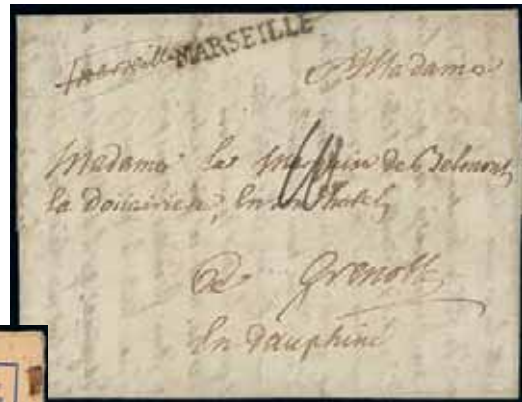 marseille MARSEILLE
A Madame
Madame la marquise de Belmont
la Douairiere, En son hotel
A Grenoble
En Dauphiné